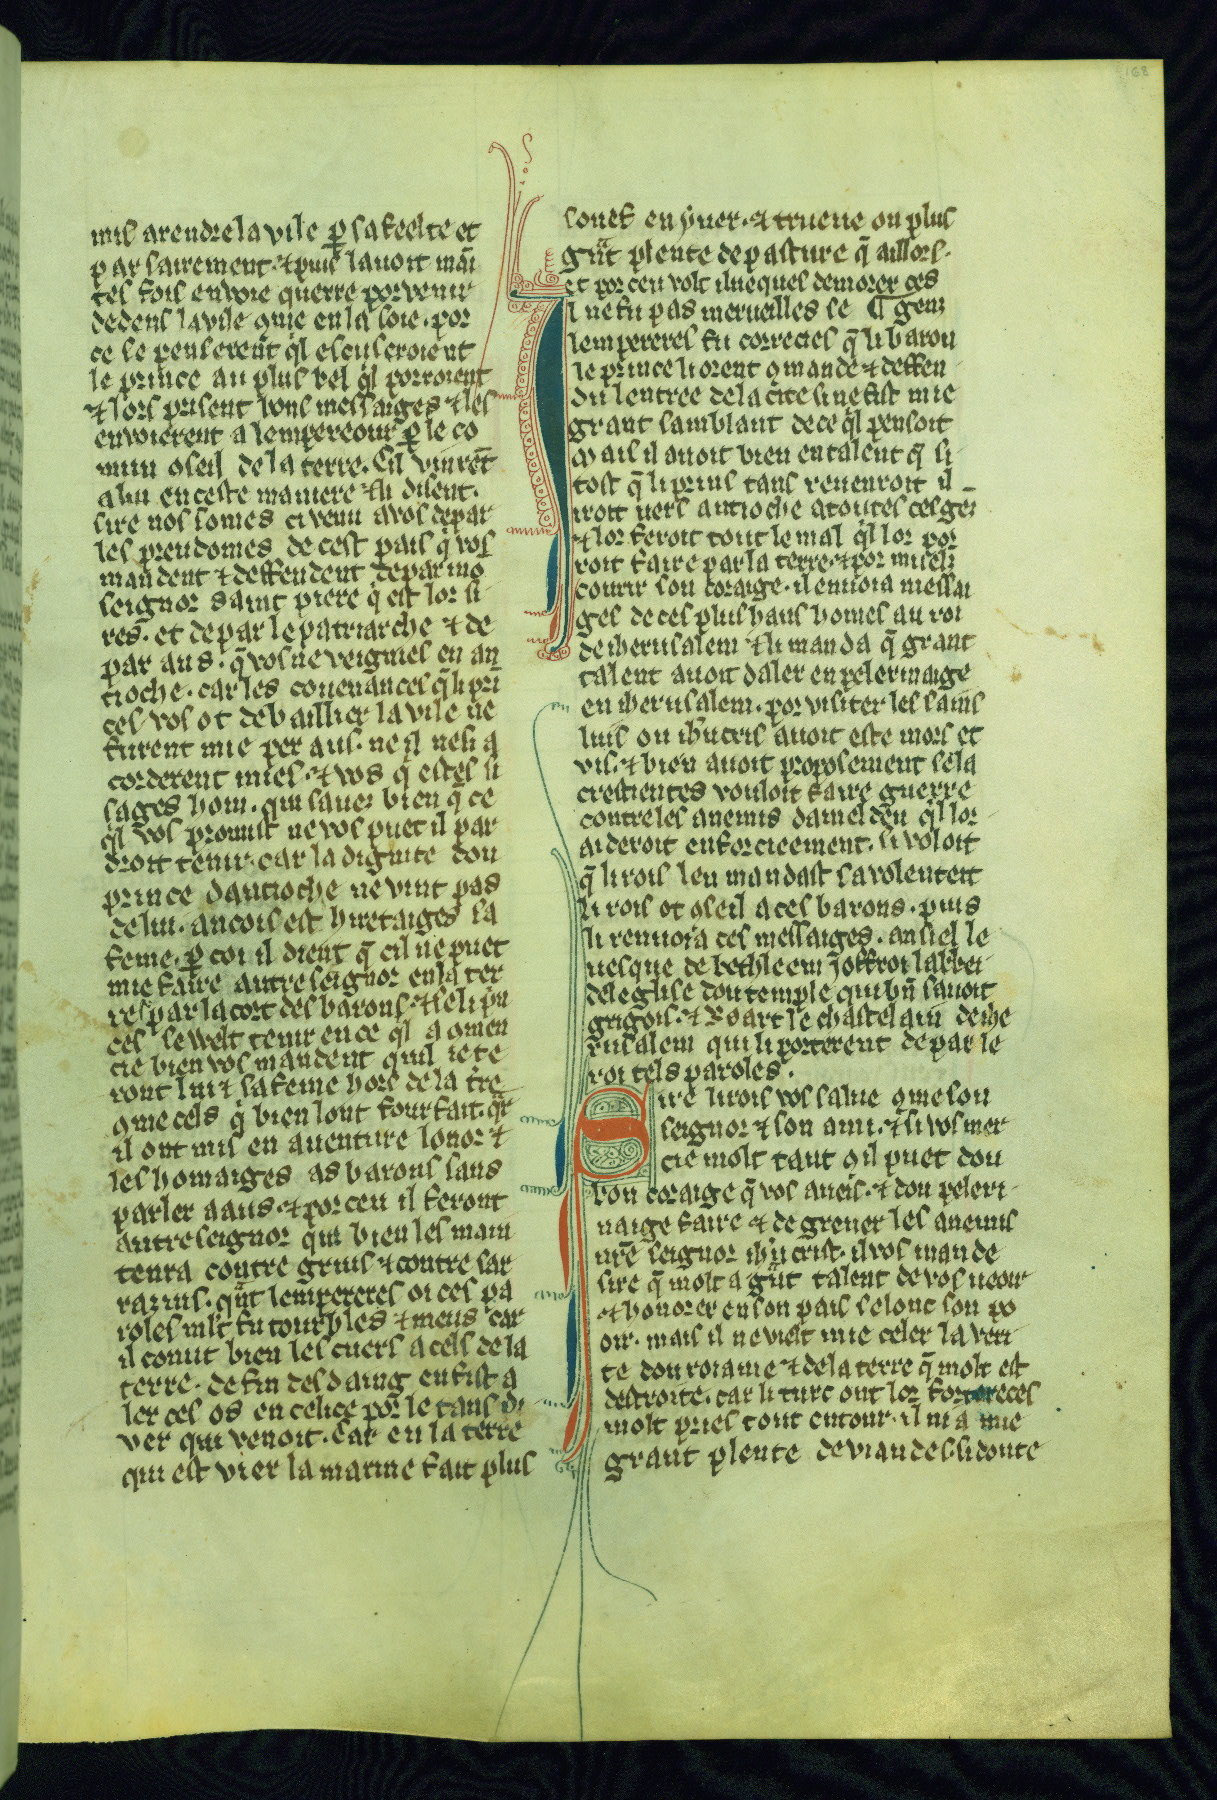 168
mis a rendre la vile p̱ sa feelte et
par sairement. ⁊ puis lauoit mai
tes fois enuoie querre por venir
dedens la vile ꝯme en la soie. por
ce se penserent q̓l escuseroient
le prince au plus bel q̓l porroient
⁊ lors prisent bons messaiges ⁊ les
enuoierent a lempereour p̱ le co
mun ꝯseil de la terre. Cil vinrēt
a lui en ceste maniere ⁊ li disent.
sire nos somes ci venu a vos de par
les preudomes de cest pais q̄ vos
mandent ⁊ deffendent de par mō
seignor saint piere q̓ est lor si
res. et de par le patriarche ⁊ de
par aus. q̄ vos ne veignies en an
tioche. car les couenances q̄ li pri
ces vos ot de baillier la vile ne
furent mie per aus. ne il ne si a
corderent mies. ⁊ vos q̓ estes si
sages hom. qui sauez bien q̄ ce
q̓l vos promist ne vos puet il par
droit tenir. car la dignite dou
prince dantioche ne vint pas
de lui. ancois est hiretaiges sa
feme. p̱ coi il dient q̄ cil ne puet
mie faire autre seignor en la ter
re. par la cort des barons. ⁊ se li pn
ces se welt tenir en ce q̓l a ꝯmen
cie bien vos mandent quil iete
ront lui ⁊ sa feme hors de la tre
ꝯme cels q̓ bien lont fourfait. q̄r
il ont mis en auenture lonor ⁊
les homaiges as barons sans
parler a aus. ⁊ por ceu il feront
autre seignor qui bien les main
tenra contre grius ⁊ contre sar
razins. qnt lempereres oi ces pa
roles mlt fu tourbles ⁊ meus car
il conut bien les cuers a cels de la
terre. de fin desdaing en fist a
ler ces os en celice por le tans di
ver qui venoit. Car en la terre
qui est vier la marine fait plus
souef en yuer. ⁊ trueue on plus
gnt plente de pasture q̄ aillors.
et por ceu volt iluequel demorer ces
I ne fu pas merueilles se ¶ genz
lempereres fu correcies q̄ li baron
⁊ le prince li orent ꝯmande ⁊ deffen
du lentree de la cite si ne fist mie
grant samblant de ce q̓l pensoit
Mais il auoit bien en talent q̄ si
tost q̄ li prins tans reuenroit il
iroit uers antioche a toutes ces gēz
⁊ lor feroit tout le mal q̓l lor por
roit faire par la terre. ⁊ por mielz
courir son coraige. il enuoia messai
ges de ces plus haus homes au roi
de iherusalem ⁊ li manda q̄ grant
talent auoit daler en pelerinaige
en iherusalem. por visiter les sains
luis ou ihucris auoit este mors et
vis. ⁊ bien auoit proposement se la
crestientes vouloit faire guerre
contre les anemis damel deu q̓l lor
aideroit enforcieement. si voloit
q̄ li rois len mandast sa volenteit
li rois ot ꝯseil a ces barons. puis
li renuoia ces messaiges. ansiel le
uesque de bethleem Joffroi labbei
del eglise dou temple qui bn̄ sauoit
grigois. ⁊ Roart le chastelain de ihe
rusalem qui li porterent de par le
roi tels paroles.
Sire li rois vos salue ꝯme son
seignor ⁊ son ami. ⁊ si vos mer
cie molt tant ꝯ il puet dou
bon coraige q̄ vos aueis. ⁊ dou peleri
naige faire ⁊ de greuer les anemis
nr̄e seignor ihu crist. il vos mande
sire q̄ molt a gnt talent de vos ueoir
⁊ honorer en son pais selonc son po
oir. mais il ne vielt mie celer la veri
te dou roiame ⁊ de la terre q̄ molt est
destroite. car li turc ont lor fortereces
molt pries tout entour. il ni a mie
grant plente de viandes si doute